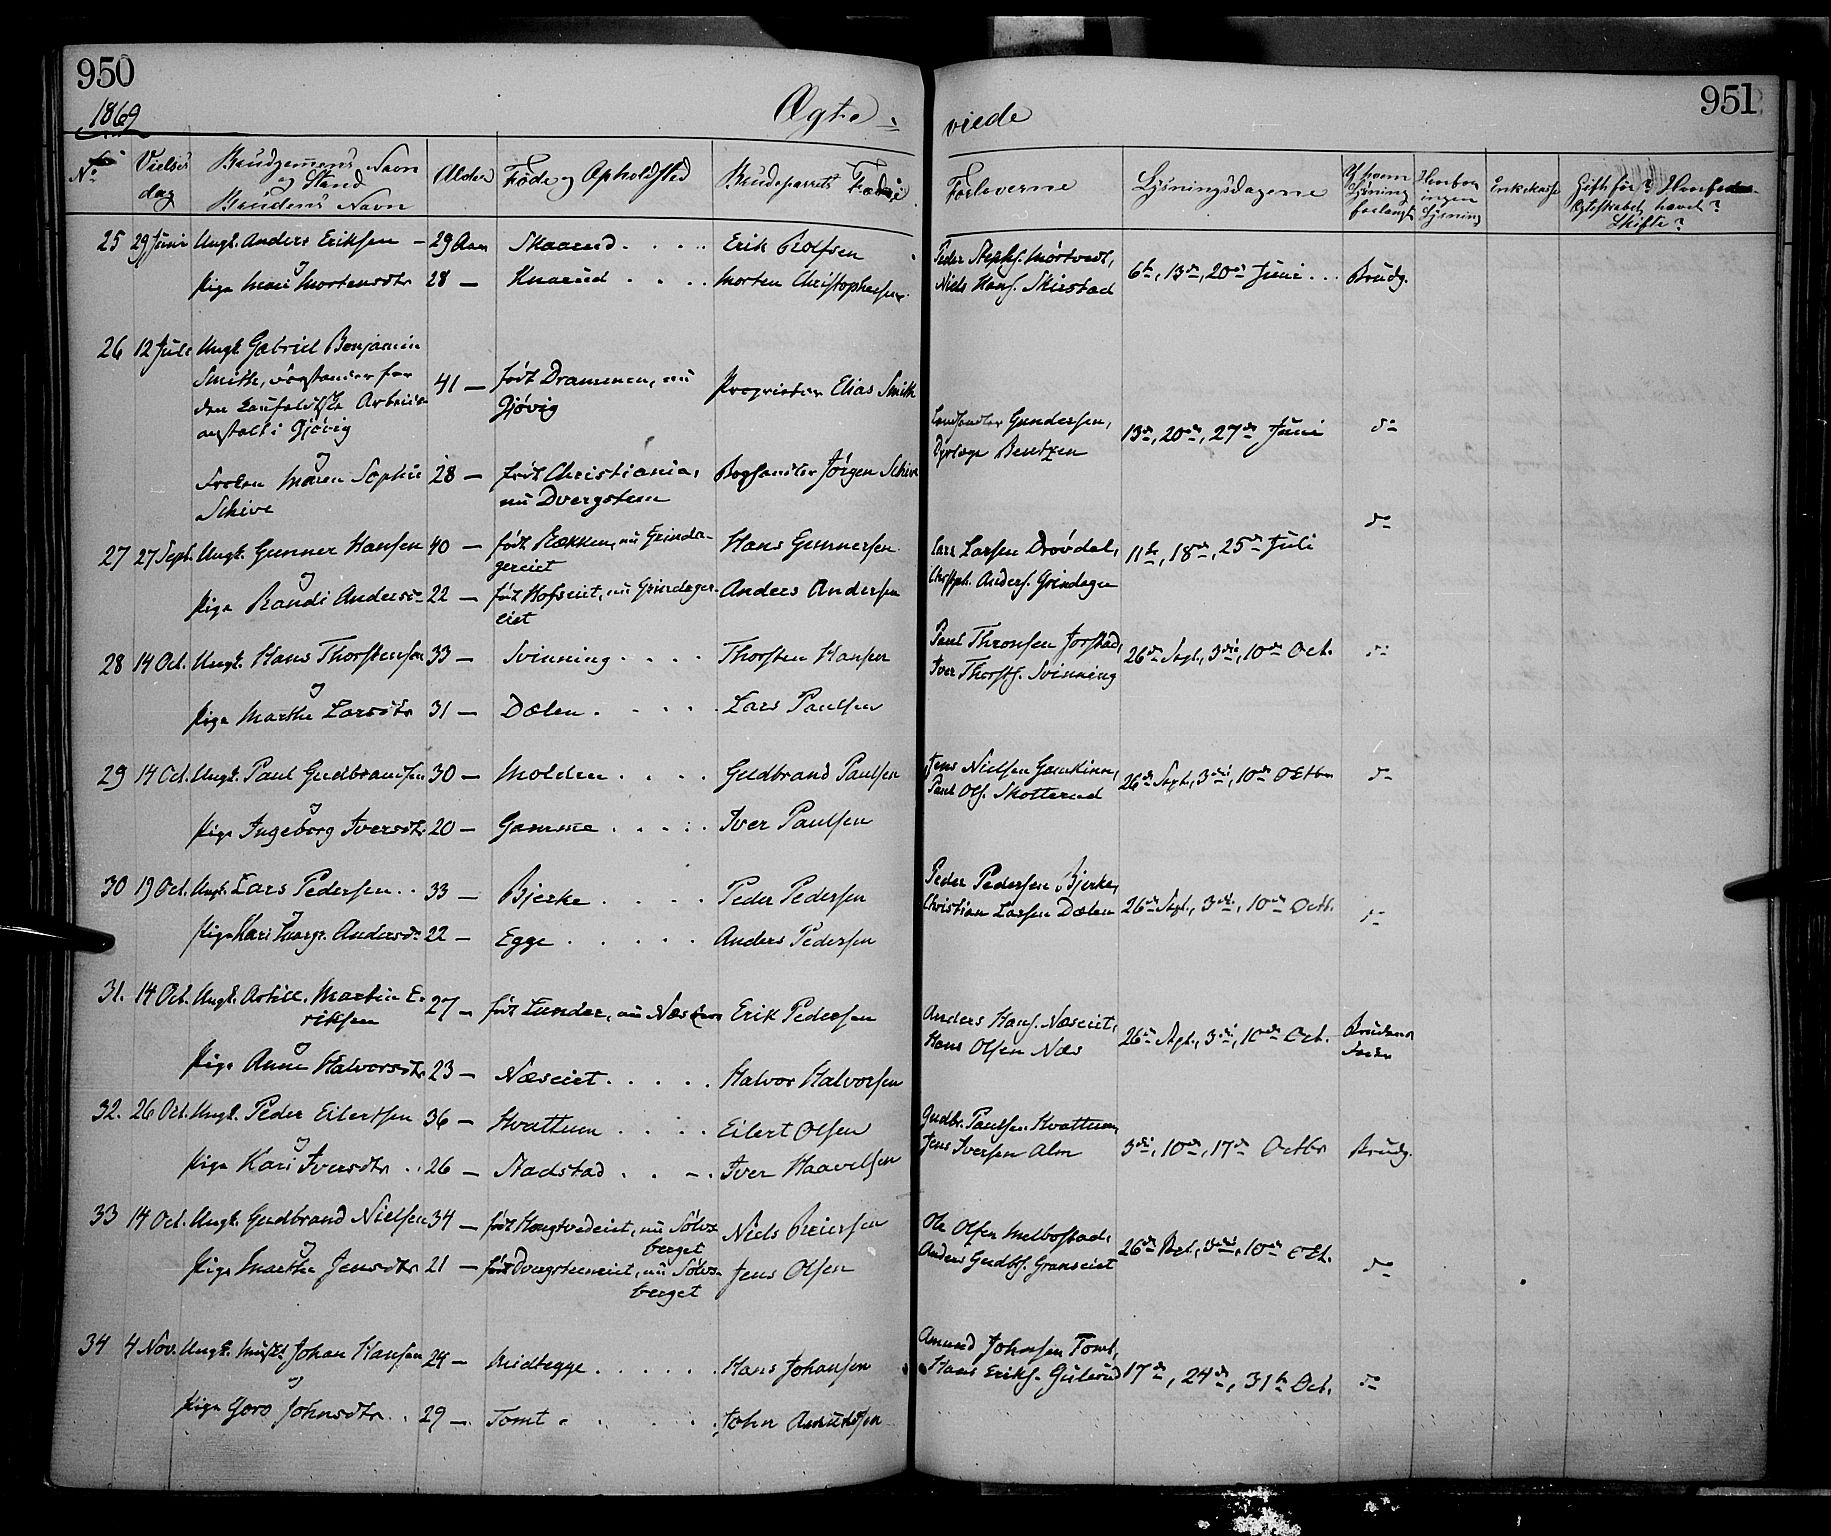 950
951
1869
Ægte-
viede
No
Vielses dag
Brudgommens Navn og Stand
Brudens Navn
Alder
Føde og Opholdsted
Brudeparrets Fædre
Forloverne
Lysningsdagene
Af hvem Lysning forlangt
Lysning
Enkekasse
Gift før?
Skifte?
25 29 Juni Ungk. Anders Eriksen – 29 Aar Skaarud . . . . Erik Rolfsen Peder Steph. Mørtvedt,
og
Pige Mari Mortensdtr 28 – Knarud . . . . Morten Christophersen Niels Hans. Skiestad 6te, 13de, 20de Juni . . . Brudg.
26 12 Juli Ungk. Gabriel Benjamin
Smith, for
den Arbeids-
anstalt i Gjøvig 41 – født Drammen, nu Gjøvig Proprietær Elias Smith
og
Landhandler Gundersen,
Dyrlæge Bentzen 13de, 20de, 27de Juni do
Frøken Maren Sophie
Schive 28 – født Christiania, nu Dvergsten Boghandler Jørgen Schive
27 27 Sept. Ungk. Gunner Hansen 40 – født Rækken, nu Grinda-
gereiet Hans Gunnersen Lars Larsen Drøvdal, 11te, 18de, 25de Juli do
og
Pige Randi Andersd. 22 – født Hofseiet, nu Grindager-
eiet Anders Andersen Christoph. Anders. Grindager
28 14 Oct. Ungk. Hans Thorstensen 33 – Svinning . . . . Thorsten Hansen Paul Thronsen Jorstad,
Iver Thorsts. Svinning 26de Sept., 3die, 10de Oct. do
og
Pige Marthe Larsdtr 31 – Dælen . . . . Lars Paulsen
29 14 Oct. Ungk. Paul Gudbrandsen 30 – Molden . . . . Gudbrand Paulsen Jens Nielsen Gamkinn,
Paul Ols. Skotterud 26de Sept., 3die, 10de Octbr do
og
Pige Ingeborg Iversdtr 20 – Gamme . . . . Iver Paulsen
30 19 Oct. Ungk. Lars Pedersen . . 33 – Bjerke . . . . Peder Pedersen Peder Pedersen Bjerke,
Christian Larsen Dælen 26de Sept., 3die, 10de Octb. do
og
Pige Kari Andersd. 22 – Egge . . . . . Anders Pedersen
31. 14 Oct. Ungk. Artill. Martin E-
riksen 27 – født Lunder, nu Erik Pedersen Anders Hans. Næseiet,
Hans Olsen Næs 26de Sept., 3die, 10de Oct. Brudens Fader
og
Pige Anne Halvorsdtr 23 – Næseiet . . . . . Halvor Halvorsen
32. 26 Oct. Ungk. Peder Eilertsen 36 – Hvattum . . . . Eilert Olsen Gudbr. Paulsen Hvattum,
Jens Iversen Alm 3die, 10de, 17de Octbr Brudg.
og
Pige Kari Iversdtr . . 26 – Stadstad . . – . Iver Haavelsen
33 14 Oct. Ungk. Gudbrand Nielsen 34 – født Hougtvedeiet, nu Sølvs-
berget Niels Reiersen Ole Olsen Melbostad,
Anders Gudbs. Granseiet 26de Sept., 3die, 10de Oct. do
og
Pige Marthe Jensdtr 21 – født Dvergsteneiet, nu Sølvs-
berget Jens Olsen
34 4 Nov. Ungk. Musk. Johan Hansen 24 – Midtegge . . . . . Hans Johansen Amund Johnsen Tomt,
Hans Eriks. Gulerud 17de, 24de, 31te Oct. do
og
Pige Goro Johnsdtr . . 29 – Tomt . . . . . John Amundsen